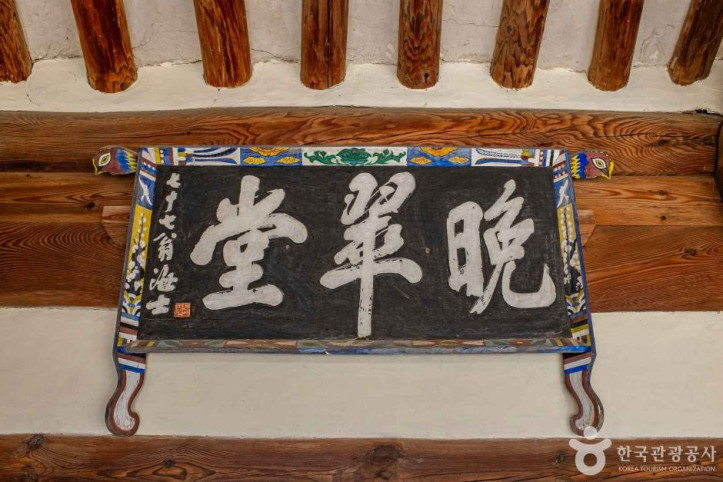 晩翠堂
七十七翁海士
한국관광공사
KOREA TOURISM ORGANIZATION